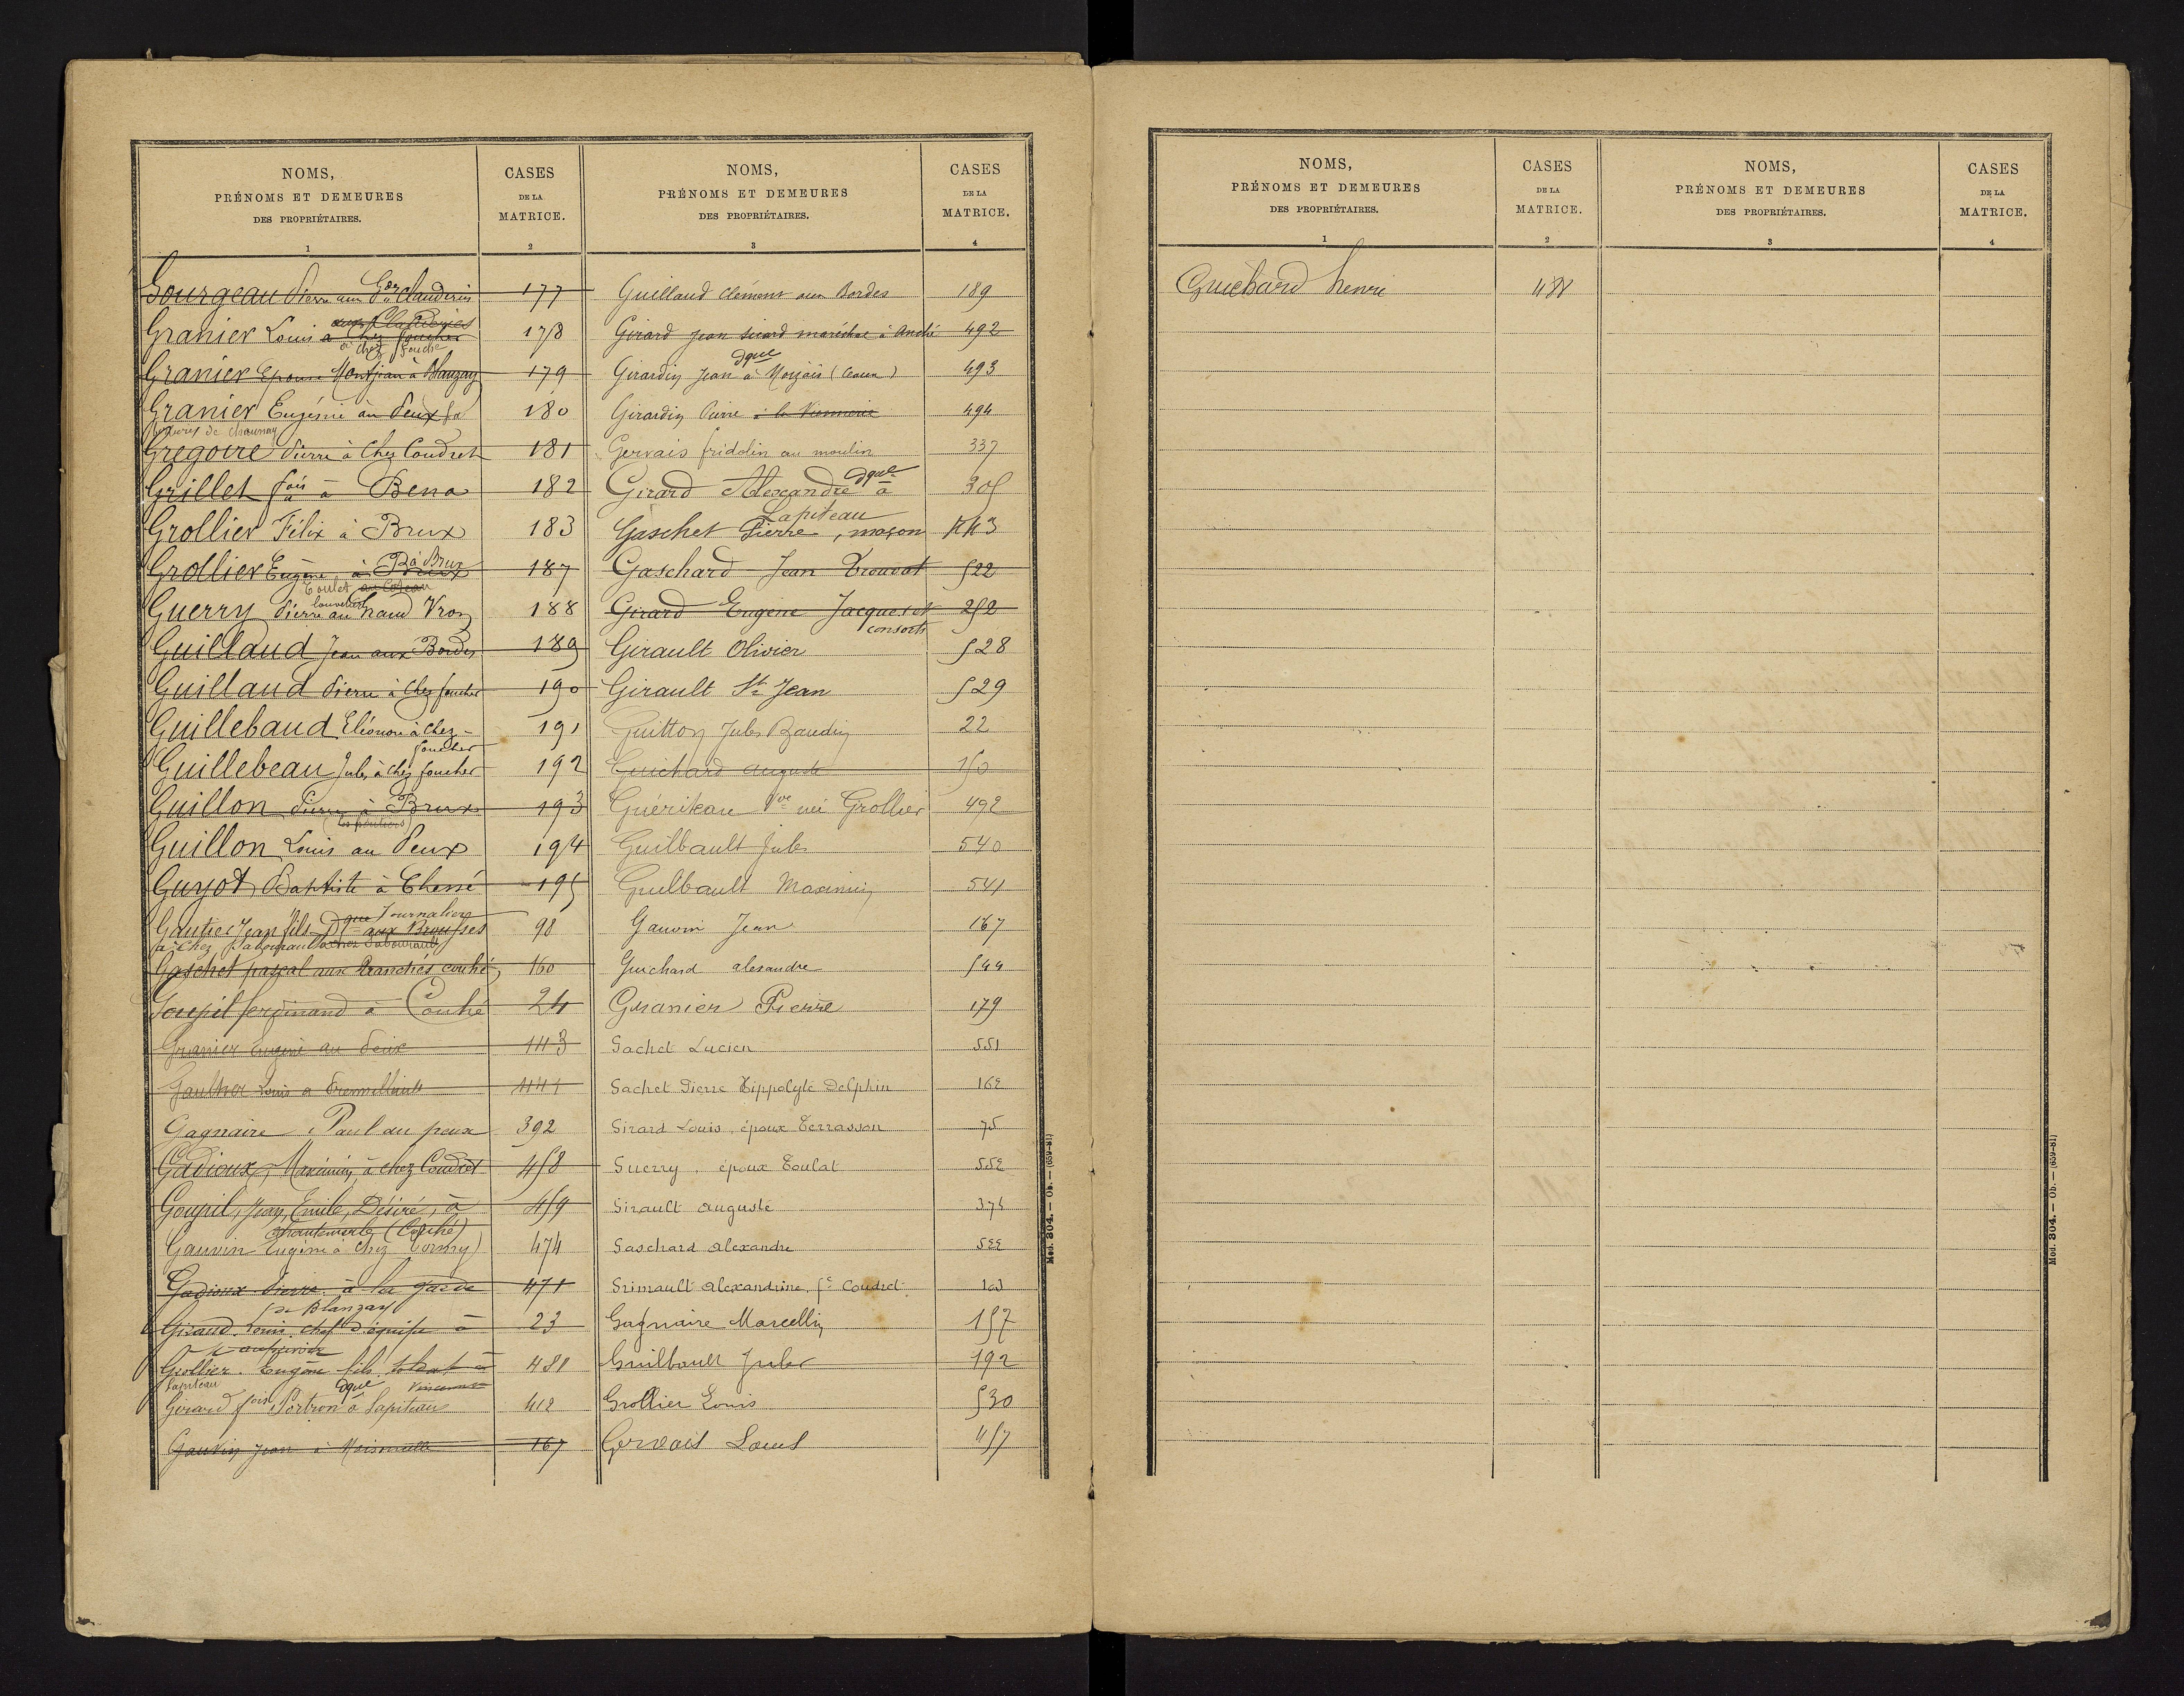 NOMS,
PRÉNOMS ET DEMEURES
DES PROPRIÉTAIRES.
1
CASES
DE LA
MATRICE.
2
Gourgeau Pierre aux 177
Granier Louis à chez Fouché 178
Granier Epouse Montjean à Blanzay 179
Granier Eugénie au Peux 180
de Chaunay
Gregoire Pierre à Chez Coudret 181
Grillet fois à Bena 182
Grollier Félix à Brux 183
Grollier Eugène à Brux 187
Toulat au Coteau
Guerry Pierre au haud Vron 188
Guillaud Jean aux Bordes 189
Guillaud Pierre à Chez foucher 190
Guillebaud Eléonore à Chez- 191
foucher
Guillebeau Jules à chez foucher 192
Guillon Pierre à Brux 193
Guillon Louis au Peux 194
Guyot Baptiste à Chessé 195
Gautier Jean fils Dque Journalier 98
aux Brousses
à Chez Sabouraud
Gaschet pascal aux Branches couhé 160
Goupil ferdinand à Couhé 24
Granier Eugène au Peux 443
Gaulthier Louis 444
Gagnaire Paul au peux 392
Gadioux, Maximin, à chez Coudret 458
Goupil, Jean, Emile, Désiré, à 459
Chantemerle (Couhé)
Gauvin Eugène à Chez 474
Gadioux Pierre à la garde 471
de Blanzay
Giraud Louis chef d'équipe à 23
Grollier Eugène fils soldat à 481
Lapiteau Vincennes
Girard fois Portron dque à Lapiteau 412
Gauvin Jean à 167
NOMS,
PRÉNOMS ET DEMEURES
DES PROPRIÉTAIRES.
3
CASES
DE LA
MATRICE.
4
Guillaud Clément aux Bordes 189
Girard Jean Sicard maréchal à Anché 492
Girardin Jean dque à (Ceaux) 493
Girardin Pierre à la 494
Gervais fridolin au moulin 337
Girard Alexandre dque à 305
Lapiteau
Gaschet Pierre, maçon 443
Gaschard Jean Trouvat 522
Girard Eugène Jacques et 252
consorts
Girault Olivier 528
Girault St Jean 529
Guitton Jules Baudin 22
Guichard auguste 150
Guériteau Vve née Grollier 492
Guilbault Jules 540
Guilbault Maximin 541
Gauvin Jean 167
Guichard alexandre 544
Granier Pierre 179
Gachet Lucien 551
Gachet Pierre Hippolyte Delphin 162
Girard Louis, époux Terrasson 75
Guerry, époux Toulat 552
Girault auguste 374
Gaschard alexandre 522
Grimault alexandrine, fe Coudret 103
Gagnaire Marcellin 157
Guilbault Jules 192
Grollier Louis 530
Gervais Louis 457
Mod. 304. — Ob. — (659-81)
NOMS,
PRÉNOMS ET DEMEURES
DES PROPRIÉTAIRES.
1
CASES
DE LA
MATRICE.
2
Guichard henri 488
NOMS,
PRÉNOMS ET DEMEURES
DES PROPRIÉTAIRES.
3
CASES
DE LA
MATRICE.
4
Mod. 304. — Ob. — (659-81)